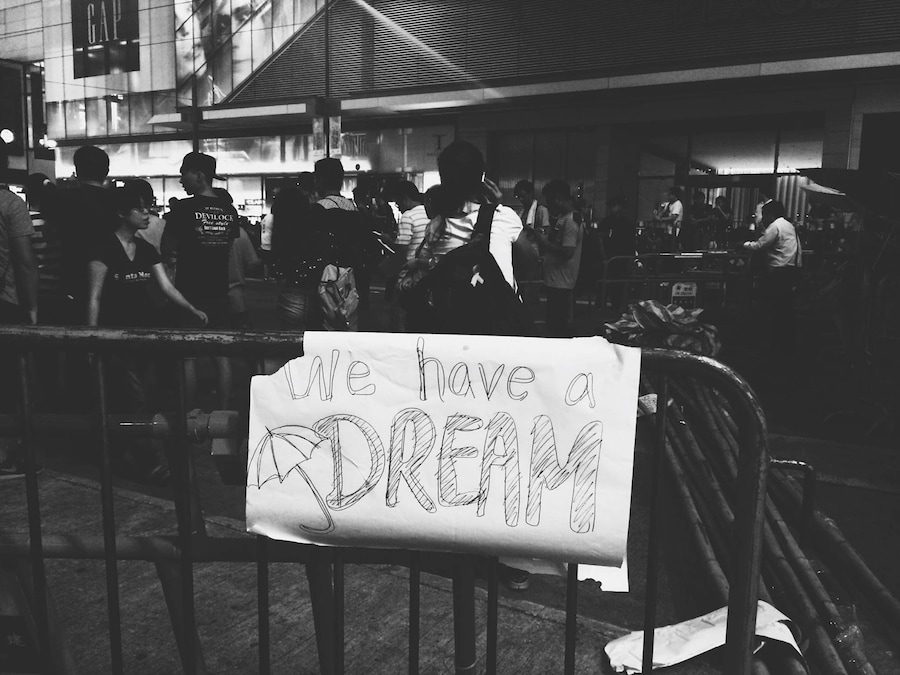 GAP
DEVILOCK
We have a
DREAM